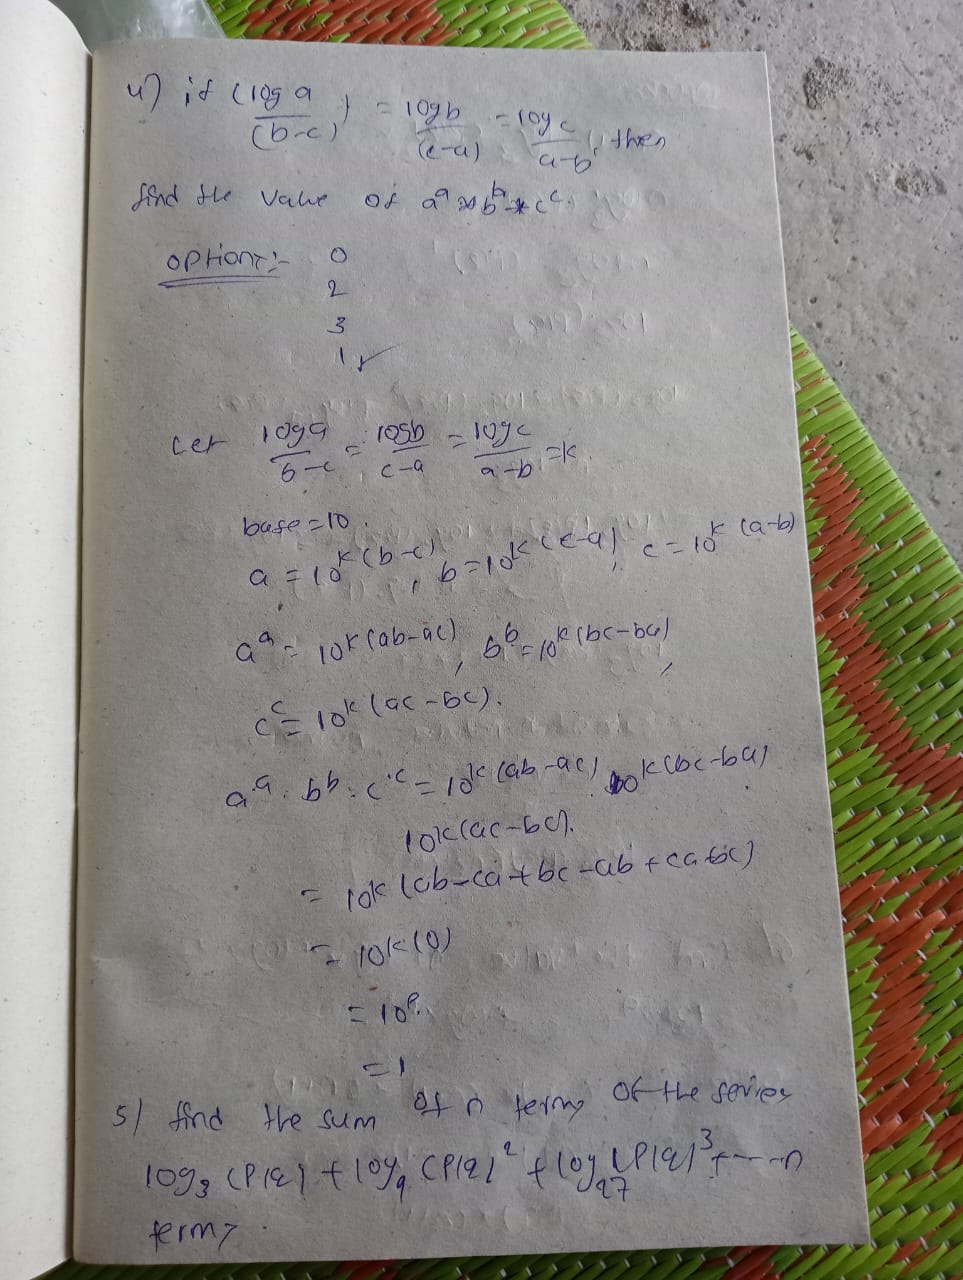 4) if (log a/(b-c)) = log b/(c-a) = log c/a-b, then
find the value of a^a * b^b * c^c.
option:- 0
2
3
1 ✓
Let log a/b-c = log b/c-a = log c/a-b = k.
base = 10.
a = 10^k(b-c), b = 10^k(c-a), c = 10^k(a-b)
a^a = 10^k(ab-ac), b^b = 10^k(bc-ba),
c^c = 10^k(ac-bc).
a^a . b^b . c^c = 10^k(ab-ac) 10^k(bc-ba)
10^k(ac-bc).
= 10^k(ab-ca+bc-ab+ca-bc)
= 10^k(0)
= 10^0.
= 1
5) find the sum of n terms of the series
log₃ (P/q) + log₉ (P/q)² + log₂₇ (P/q)³ + ---- n
terms.